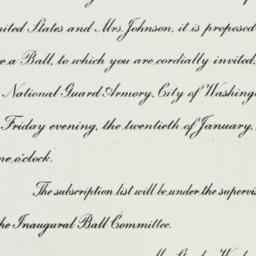 nited States and Mrs. Johnson, it is proposed
e a Ball, to which you are cordially invited,
National Guard Armory, City of Washing
Friday evening, the twentieth of January,
ne o'clock.
The subscription list will be under the supervis
he Inaugural Ball Committee.